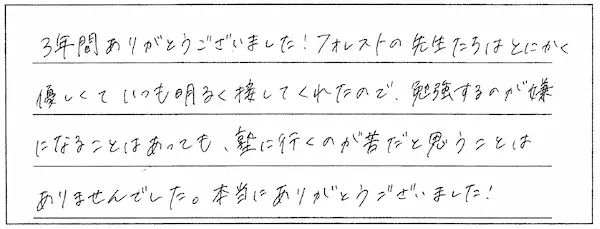 3年間ありがとうございました！フォレストの先生たちはとにかく
優しくていつも明るく接してくれたので、勉強するのが嫌
になることはあっても、塾に行くのが苦だと思うことは
ありませんでした。本当にありがとうございました！